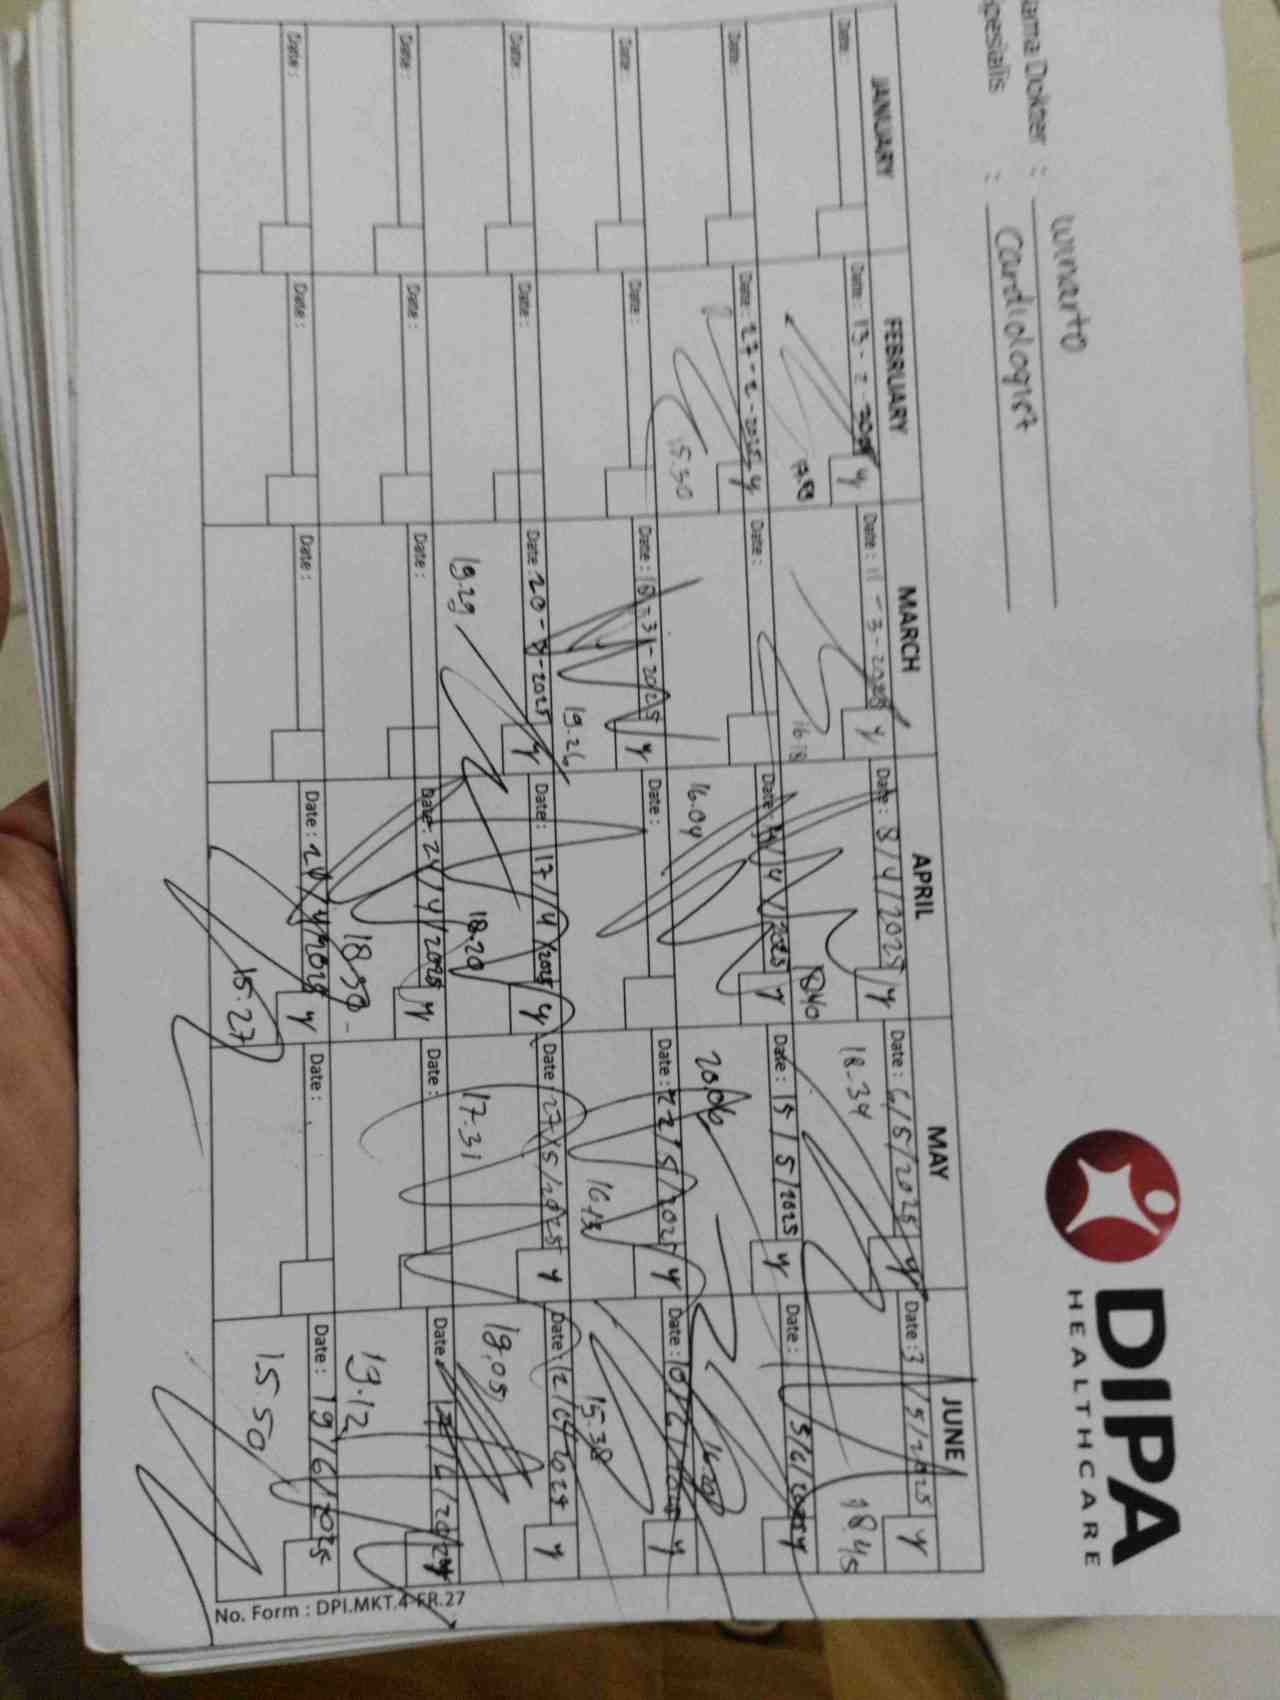 DIPA
HEALTHCARE
ama Dokter : Winarto
pesialis : Cardiologist
JANUARY FEBRUARY MARCH APRIL MAY JUNE
Date: Date: 13-2-2025 y Date: 11-3-2025 y Date: 8/4/2025 y Date: 6/5/2025 y Date: 3/5/2025 y
17.53 16.18 18.34 18.45
Date: Date: 27-2-2025 y Date: Date: /4/2025 y Date: 15/5/2025 y Date: 5/6/2025 y
15.30 16.04 20.06
Date: Date: Date: 18-3-2025 y Date: Date: 22/5/2025 y Date: 10/6/2025 y
19.26 16.13 15.38
Date: Date: Date: 20-3-2025 y Date: 17/4/2025 y Date: 27/5/2025 y Date: 12/6/2025 y
19.29 18.20 17.31 19.05
Date: Date: Date: Date: 24/4/2025 y Date: Date: /6/2025 y
18.30 19.12
Date: Date: Date: Date: /4/2025 y Date: Date: 19/6/2025
15.27 15.50
No. Form : DPI.MKT.4-FR.27